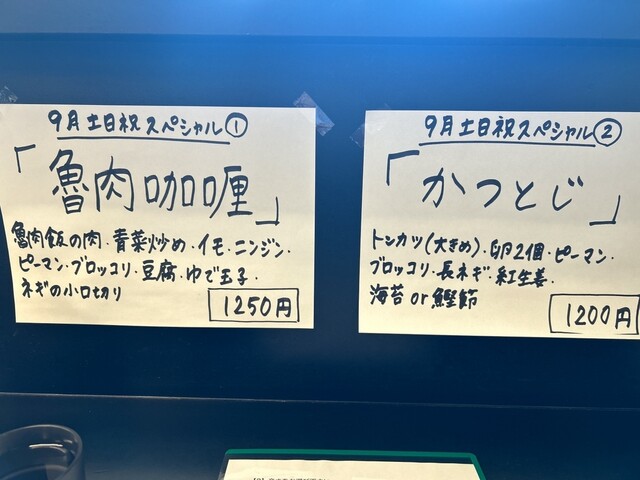 9月土日祝スペシャル①
「魯肉咖喱」
魯肉飯の肉・青菜炒め・イモ・ニンジン・
ピーマン・ブロッコリ・豆腐・ゆで玉子・
ネギの小口切り
1250円
9月土日祝スペシャル②
「かつとじ」
トンカツ(大きめ)・卵2個・ピーマン・
ブロッコリ・長ネギ・紅生姜・
海苔or鰹節
1200円